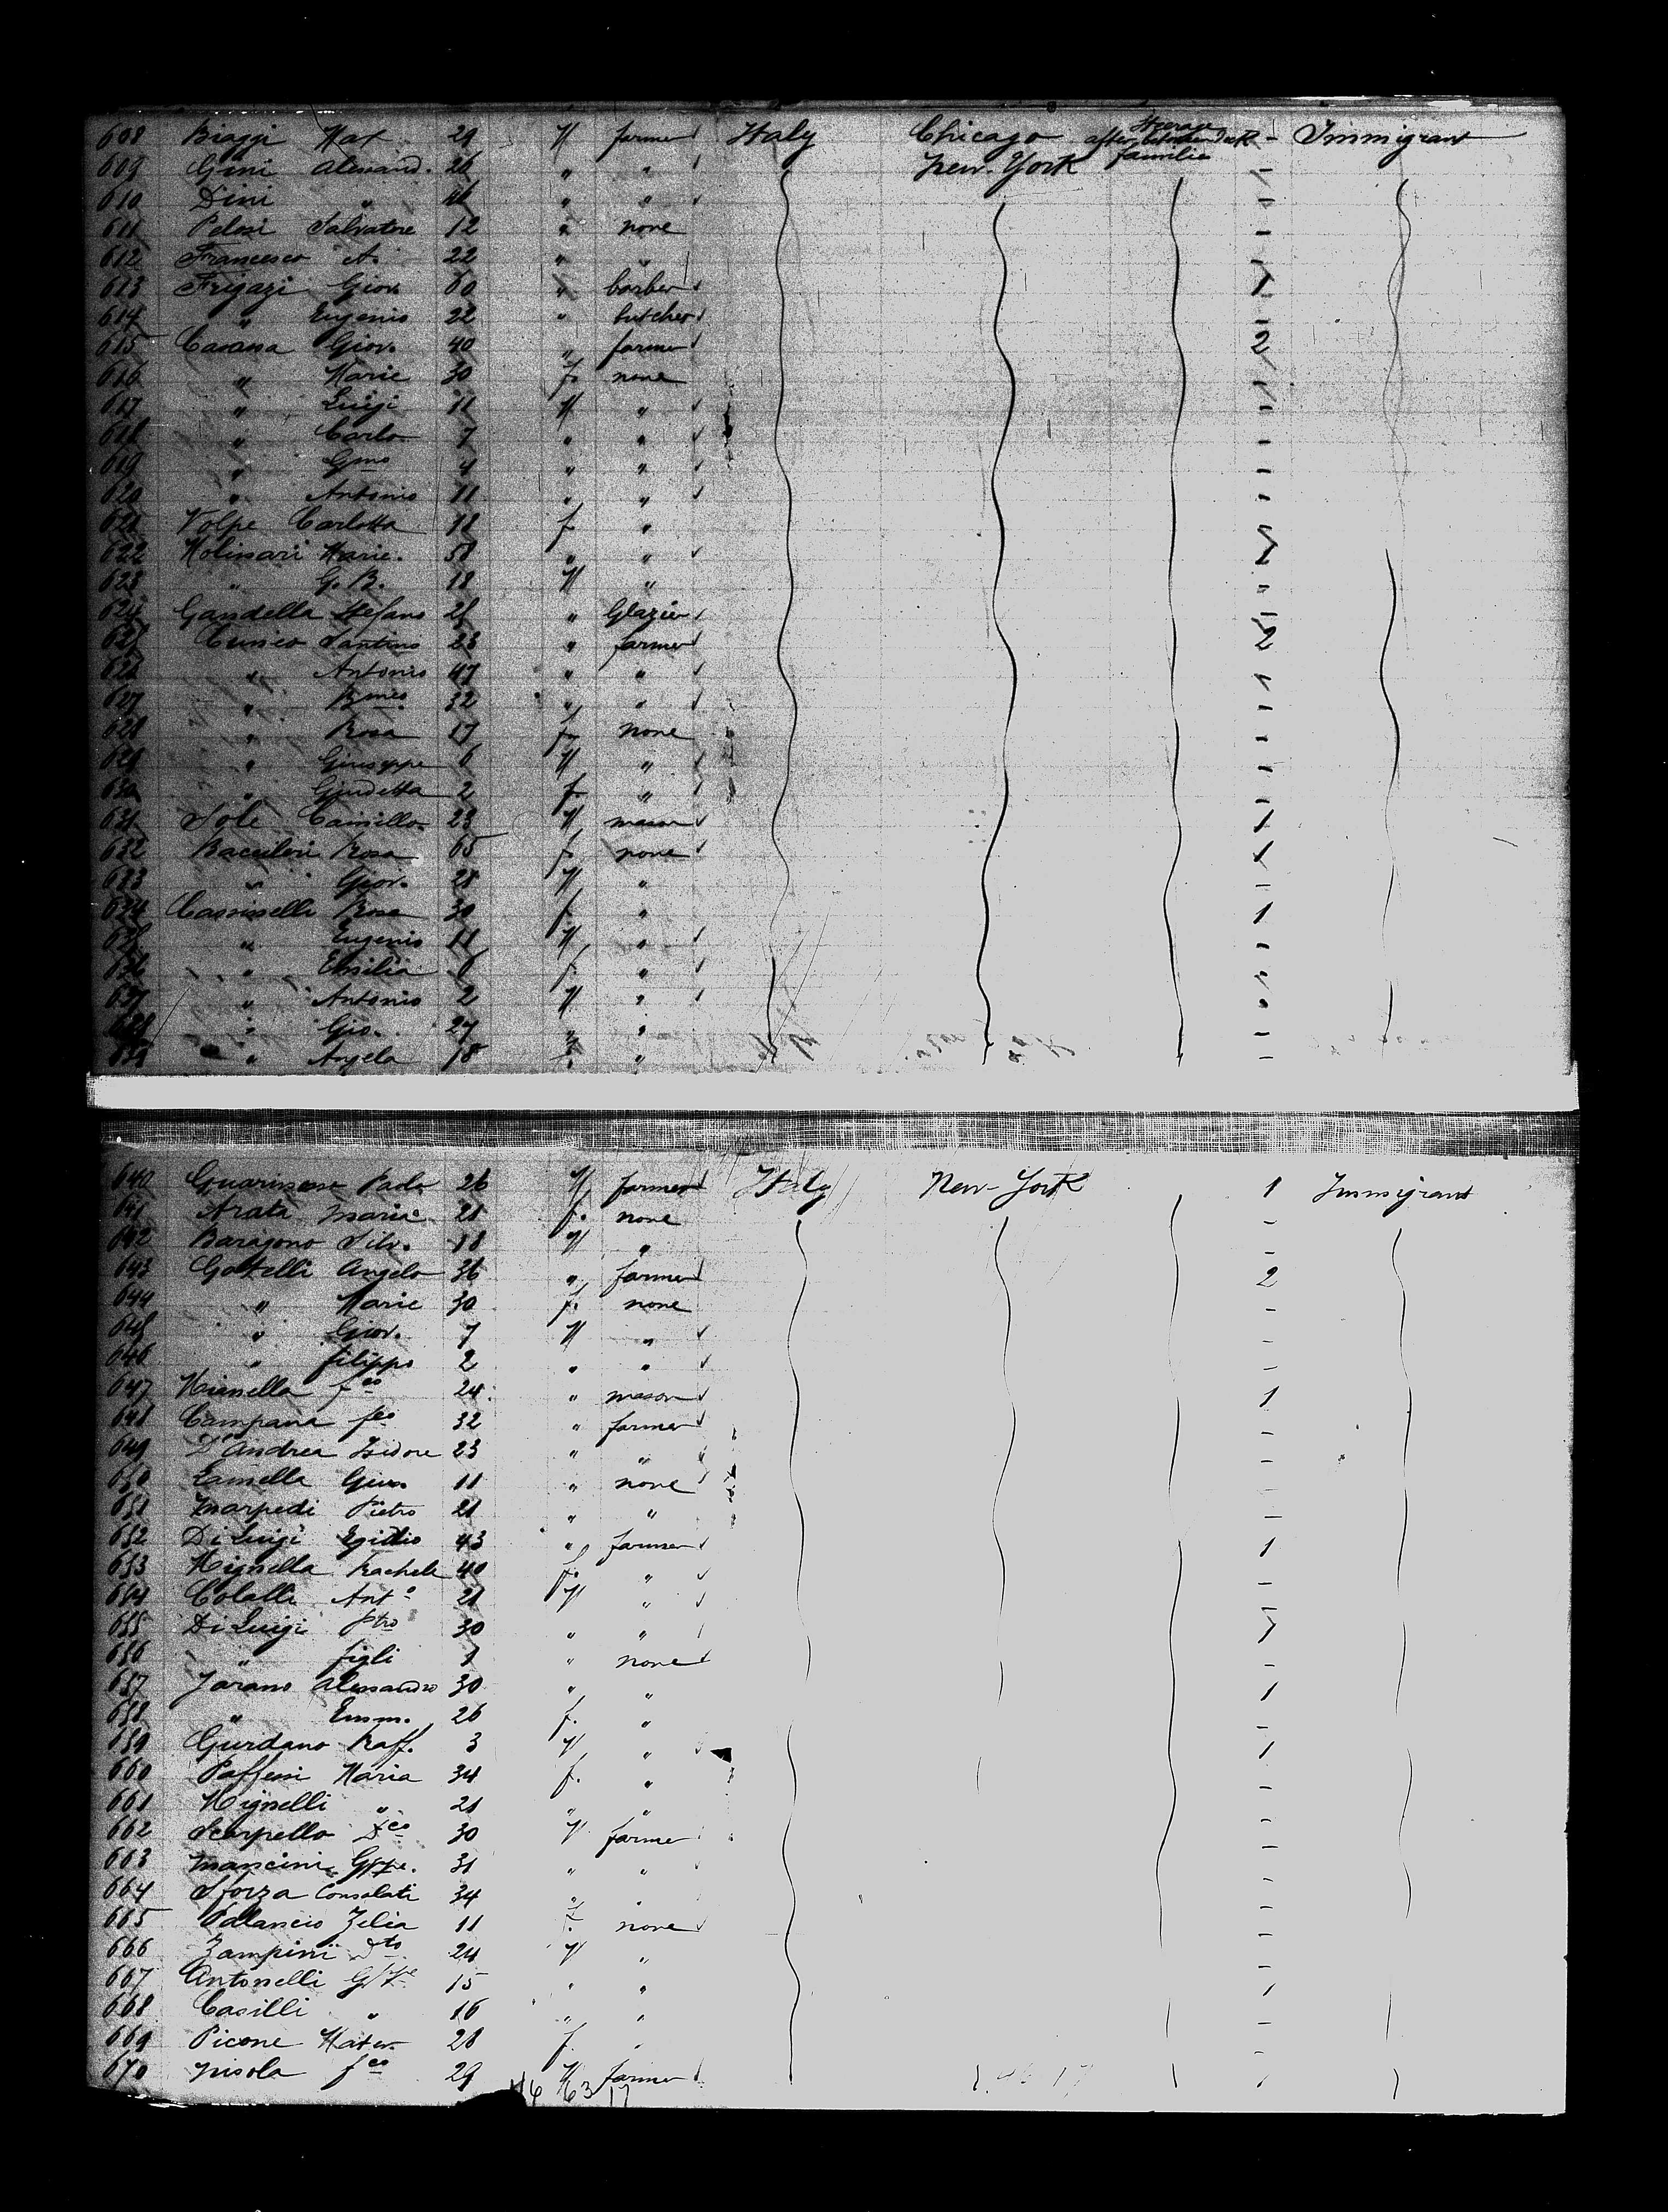 608 Biaggi Max 29 M farmer Italy Chicago Steerage after between Deck families - Immigrant
609 Gini Alessand. 26 " " New-York -
610 Dini " 46 " " -
611 Pelosi Salvatore 12 " none -
612 Francesco A. 22 " " -
613 Frigazi Giov. 60 " barber 1
614 " Eugenio 22 " butcher -
615 Casana Giov. 40 " farmer 2
616 " Marie 30 f. none -
617 " Luigi 11 M " -
618 " Carlo 7 " " -
619 " Gmo 4 " " -
620 " Antonio 11 " " -
621 Volpe Carlotta 18 f. "
622 Molinari Marie. " "
623 " G. B. 18 M "
624 Gandella Stefano " Glazier
625 Cunico Santino 23 " farmer 2
626 " Antonio 47 " "
627 " Bmeo 32 " " -
628 " Rosa 17 f. none -
629 " Giuseppe 6 M " -
630 " Giudetta 2 f. " -
631 Sole Camillo 23 M mason 1
632 Baccilori Rosa 65 f. none 1
633 " Giov. 28 M " -
634 Cassinelli Rosa 30 f. " 1
635 " Eugenio 11 M " -
636 " Emilia 6 f. " -
637 " Antonio 2 M "
638 " Gio. 27 " " -
639 " Angela 18 f. " -
640 Guarineno Paolo 26 M farmer Italy New-York 1 Immigrant
641 Arata Maria 21 f. none -
642 Baragono Silv. 18 M " -
643 Gottelli Angelo 36 " farmer 2
644 " Marie 30 f. none -
645 " Giov. 7 M " -
646 " filippo 2 " " -
647 fco 24 " mason 1
648 Campana fco 32 " farmer -
649 D'Andrea Isidore 23 " " -
650 Lamella Giov. 11 " none -
651 Marpedi Pietro 21 " " -
652 Di Luigi Egidio 43 " farmer 1
653 Mignella Rachele 40 f. " -
654 Colalli Anto 21 M " -
655 Di Luigi Ptro 30 " " 1
656 " figli 1 " none -
657 Jarano Alessandro 30 " " 1
658 " Emm. 26 f. " -
659 Giurdano Raff. 3 M " 1
660 Paffemi Maria 34 f. " -
661 Mignelli " 21 " " -
662 Scarpello Dco 30 M farmer -
663 Mancini Gppe. 31 " " -
664 Sforza Consolati 34 " " -
665 Palancio Zelia 11 f. none -
666 Zampini Dto 24 M " -
667 Antonelli Gppe 15 " " 1
668 Casilli " 16 " " -
669 Picone Mater. 28 f. " -
670 Nisola fco 29 M farmer 1
46 63 17